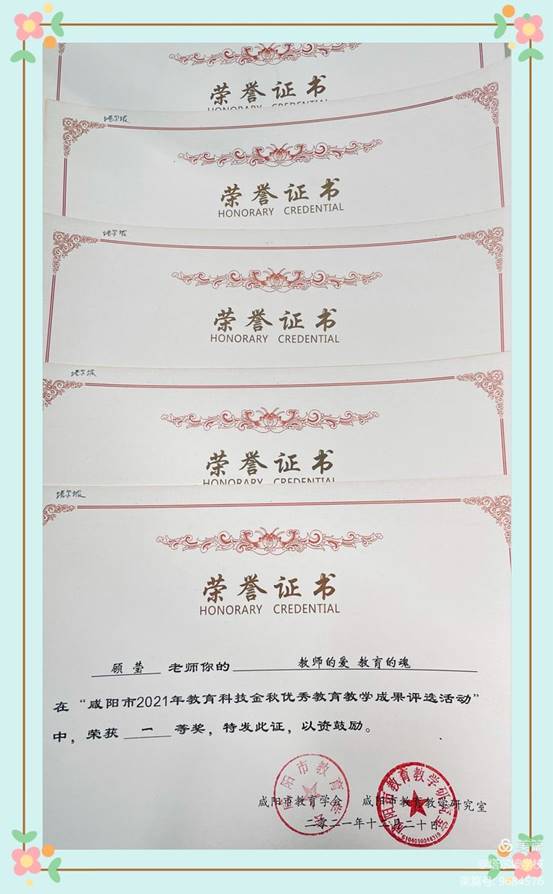 荣誉证书
HONORARY CREDENTIAL
荣誉证书
HONORARY CREDENTIAL
荣誉证书
HONORARY CREDENTIAL
荣誉证书
HONORARY CREDENTIAL
荣誉证书
HONORARY CREDENTIAL
顾 莹 老师你的 教师的爱 教育的魂
在“咸阳市2021年教育科技金秋优秀教育教学成果评选活动”
中，荣获 一 等奖，特发此证，以资鼓励。
咸阳市教育学会 咸阳市教育教学研究室
二〇二一年十二月二十日
美篇